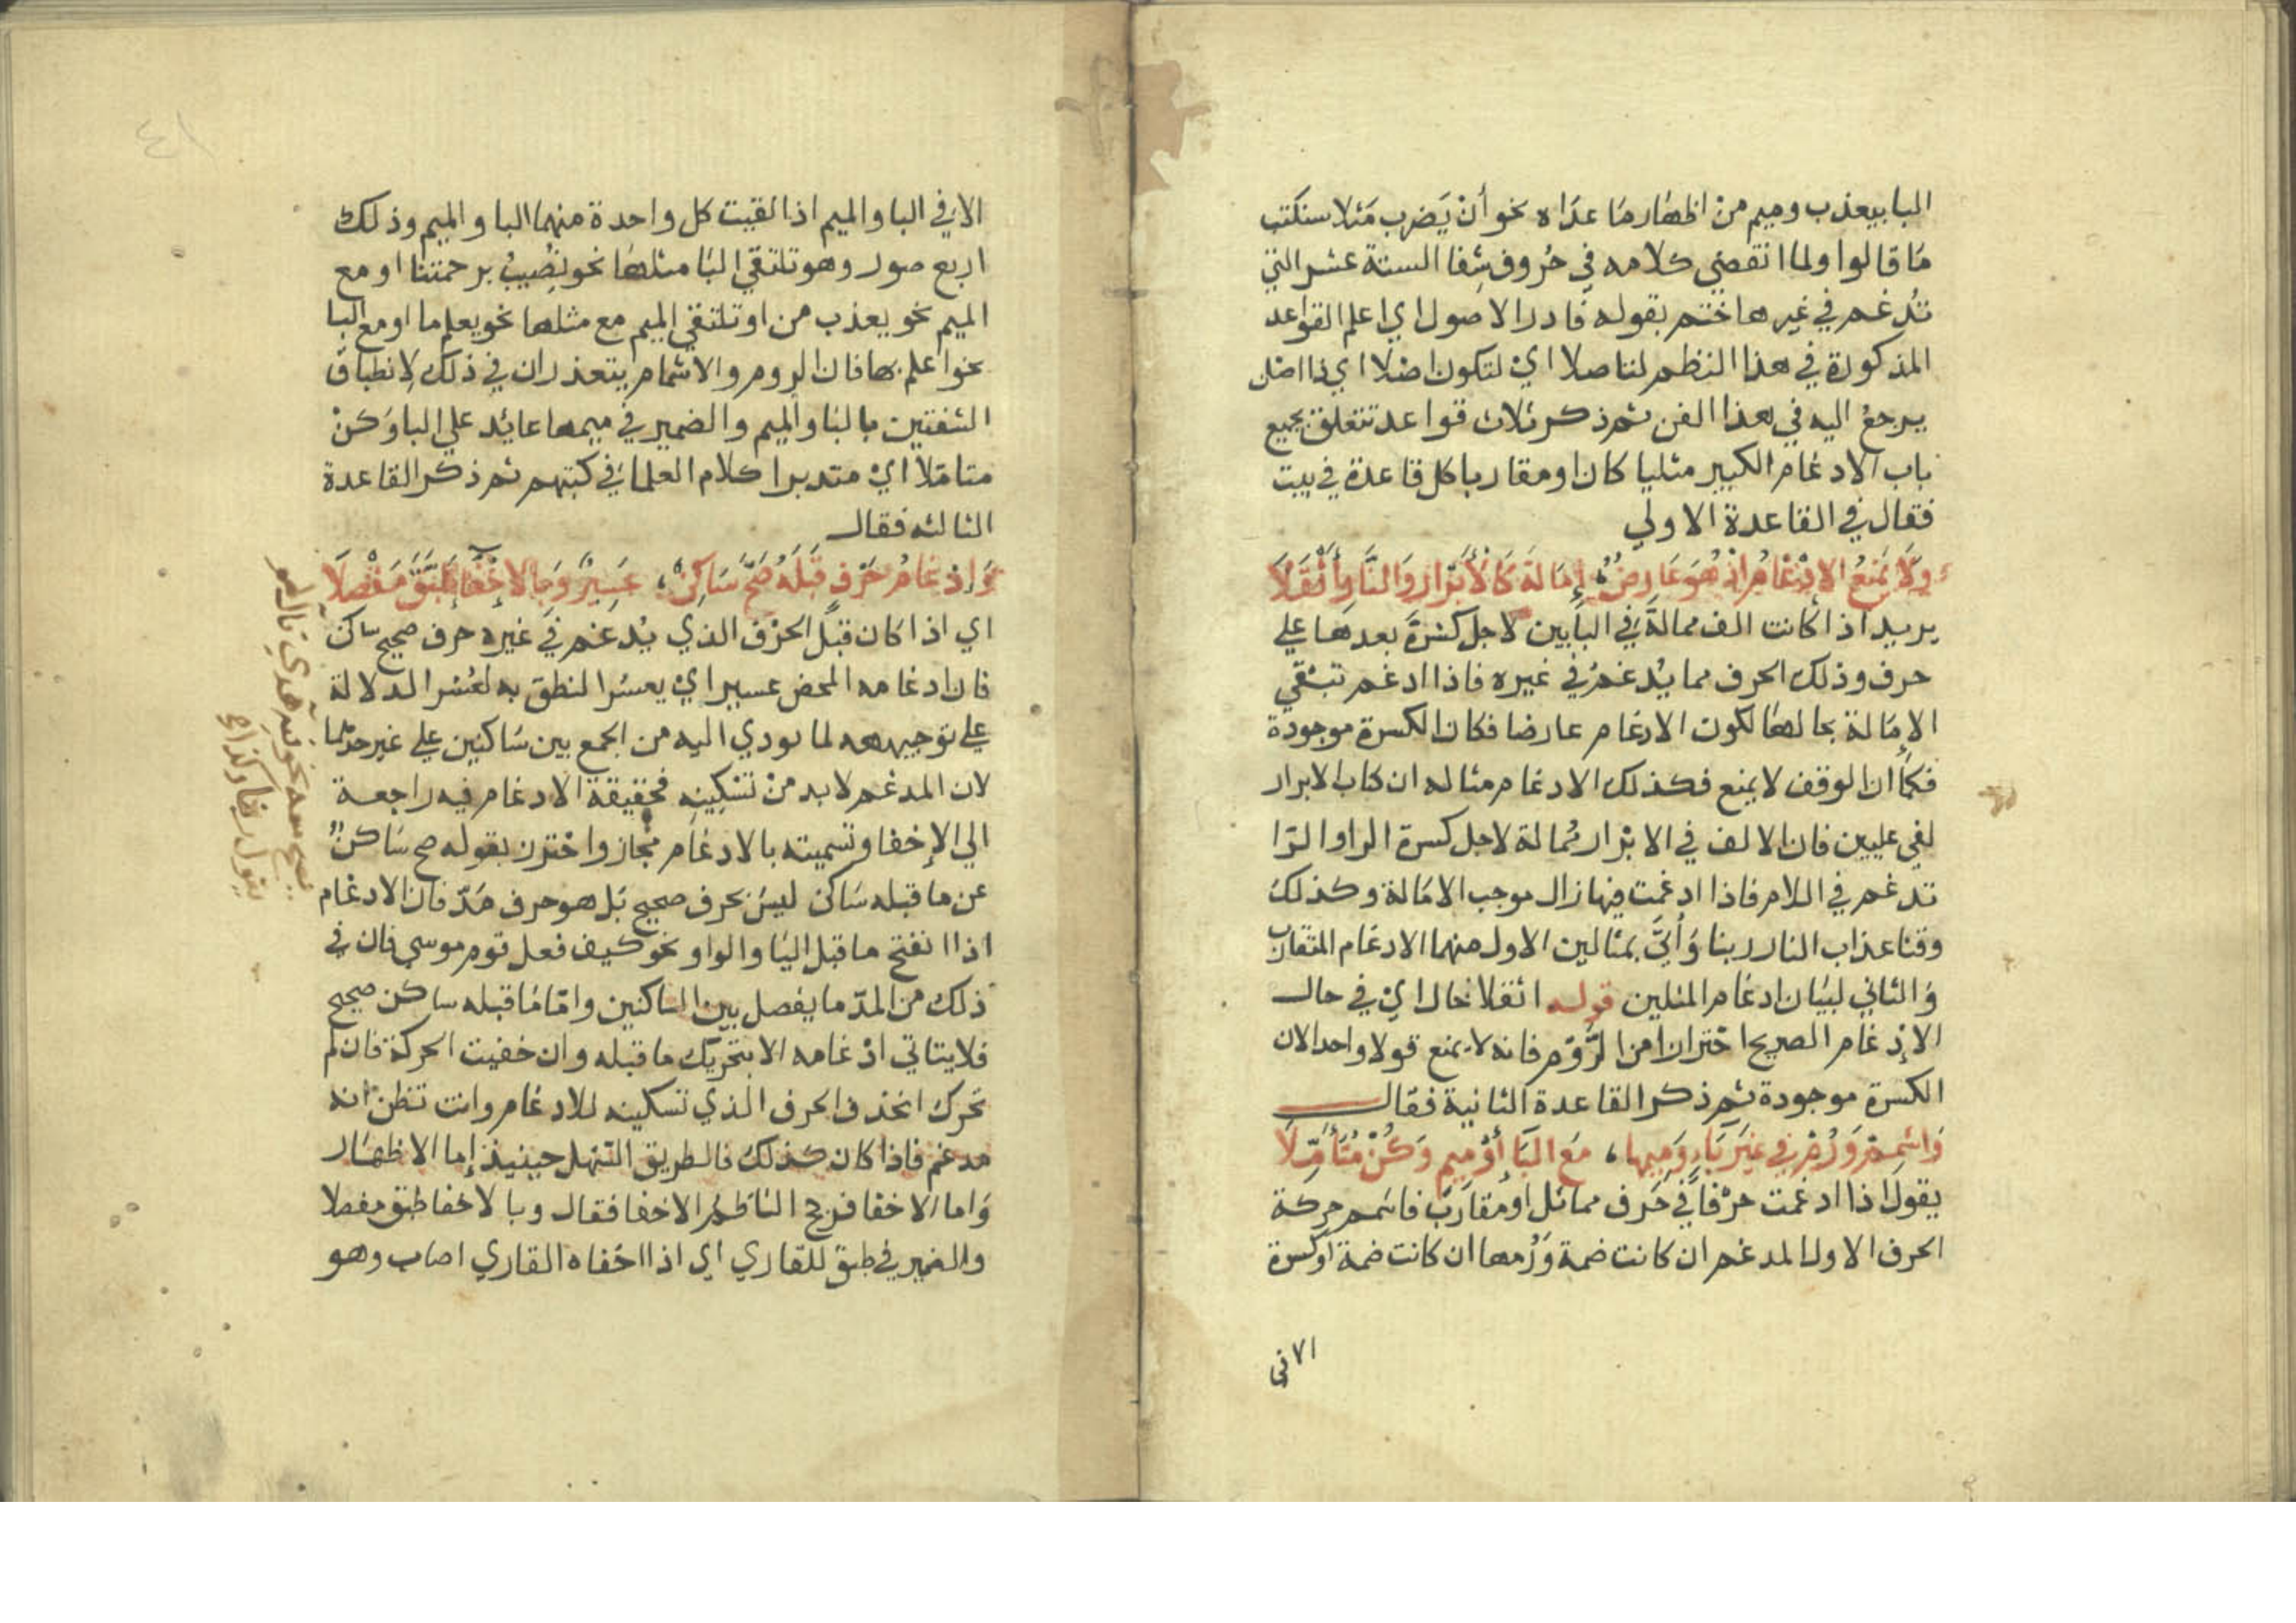 البا بيعذب وميم من اظهار ما عداه نحو أن يَضرب مَثلا سنكتب
مَا قالوا ولما انقضي كلامه في حُروف شِفا الستة عشر التي
تُدغم في غيرها ختم بقوله فادر الاصول اي اعلم القواعد
المذكورة في هذا النظم لتاصلا ايْ لتكون اصْلا اي ذا اصْل
يرجعُ اليه في هذا الفن ثم ذكر ثلاث قواعد تتعلق بجميع
باب الادغام الكبير مثليا كان او مقاربا كل قاعدة في بيت
فقال في القاعدة الاولي
وَلَا يَمْنَعُ الادْغَامُ اذْ هُوَ عَارِضٌ؛ إِمَالَةَ كَالْأَبْرَارِ وَالنَّارِ أَثْقَلَا
يريد اذا كانت الف ممالة في البابين لاجل كسْرَةٍ بعدها علي
حرف وذلك الحرف مما يُدغمُ في غيره فاذا ادغم تبْقي
الإمَالة بحالهَا لكون الادغام عارضا فكان الكسرة موجودة
فكما ان الوقف لا يمنع فكذلك الادغام مثاله ان كتاب الابرار
لفي عليين فان الالف في الابْرار مُمالة لاجل كسرة الرا والرّا
تدغم في اللام فاذا ادغمت فيها زال موجب الامَالة وكذلك
وقنا عذاب النار ربنا وَأتَي بمثالين الاول منهما الادغام المتقارب
وَالثاني لبيَان ادغام المثلين قوله اثقلا حَال ايْ في حال
الإدْغام الصريح احْترازا من الرَّوْم فانه لا يمنع قولا واحدا لان
الكسرة موجودة ثم ذكر القاعدة الثانية فقال
وَاشْمِمْ وَرُمْ فِي غَيْرِ بَاءٍ وَمِيمِهَا، مَعَ البَاءِ أَوْ مِيمٍ وَكُنْ مُتَأَمِّلَا
يقول اذا ادغمت حرْفاً في حَرف مماثل او مُقارَب فاشمم حركة
الحرف الاول المدغم ان كانت ضمة وَرُمها ان كانت ضمة او كسرة
الا في
الا في البا والميم اذا لقيت كل واحدة منهما البا والميم وذلك
اربع صور وهو تلتقي البَا مثلهَا نحو نُصِيبُ برحمتنا او مع
الميم نحو يعذب من او تلتقي الميم مع مثلها نحو يعلم ما او مع البا
نحو اعلم بها فان الروم والاشمام يتعذران في ذلك لِانطباق
الشفتين بالبَا والميم والضمير في ميمها عايُد علي البا وَكنْ
متامّلا ايْ متدبرا كلام العلما في كتبهم ثم ذكر القاعدة
الثالثه فقال
وَإِدْغَامُ حَرْفٍ قَبْلَهُ صَحَّ سَاكِنٌ، عَسِيرٌ وَبِالاِخْفَا طَبَّقَ مَفْصِلَا
اي اذا كان قبْل الحرْف الذي يُدغم في غيره حرف صحيح ساكن
فان ادغامه المحض عسير ايْ يعسُر النطق به لعُسْر الدلالة
علي توجيهه لما يودي اليه من الجمع بين سَاكنين علي غير حدّهما
لان المدغم لا بد منْ تسْكِينِه فحقيقة الادغام فيه راجعة
الي الإخفا وتسميته بالادغام مجاز واحْترز بقوله صح سَاكنٌ
عن ما قبله سَاكن ليسَ بحرف صحيح بَل هو حرف مَدّ فان الادغام
اذا انفتح ما قبل اليَا والواو نحو كيف فعل قوم موسي فان في
ذلك من المدّ ما يفصل بين الساكنين وامّا مَا قبله ساكن صحيح
فلا يتاتي ادْغامه الا بتحريك ما قبله وان خفيت الحركة فان لم
تحرك انحذف الحرف الذي تسكينه للادغام وانت تظن انه
مدغم فاذا كان كذلك فالطريق السّهل حينيذ إما الاظهَار
وَاما الاخفا فرجح الناظم الاخفا فقال وبالاخفا طبق مفصلا
والضمير في طبق للقاري اي اذا اخفاه القاري اصاب وهو